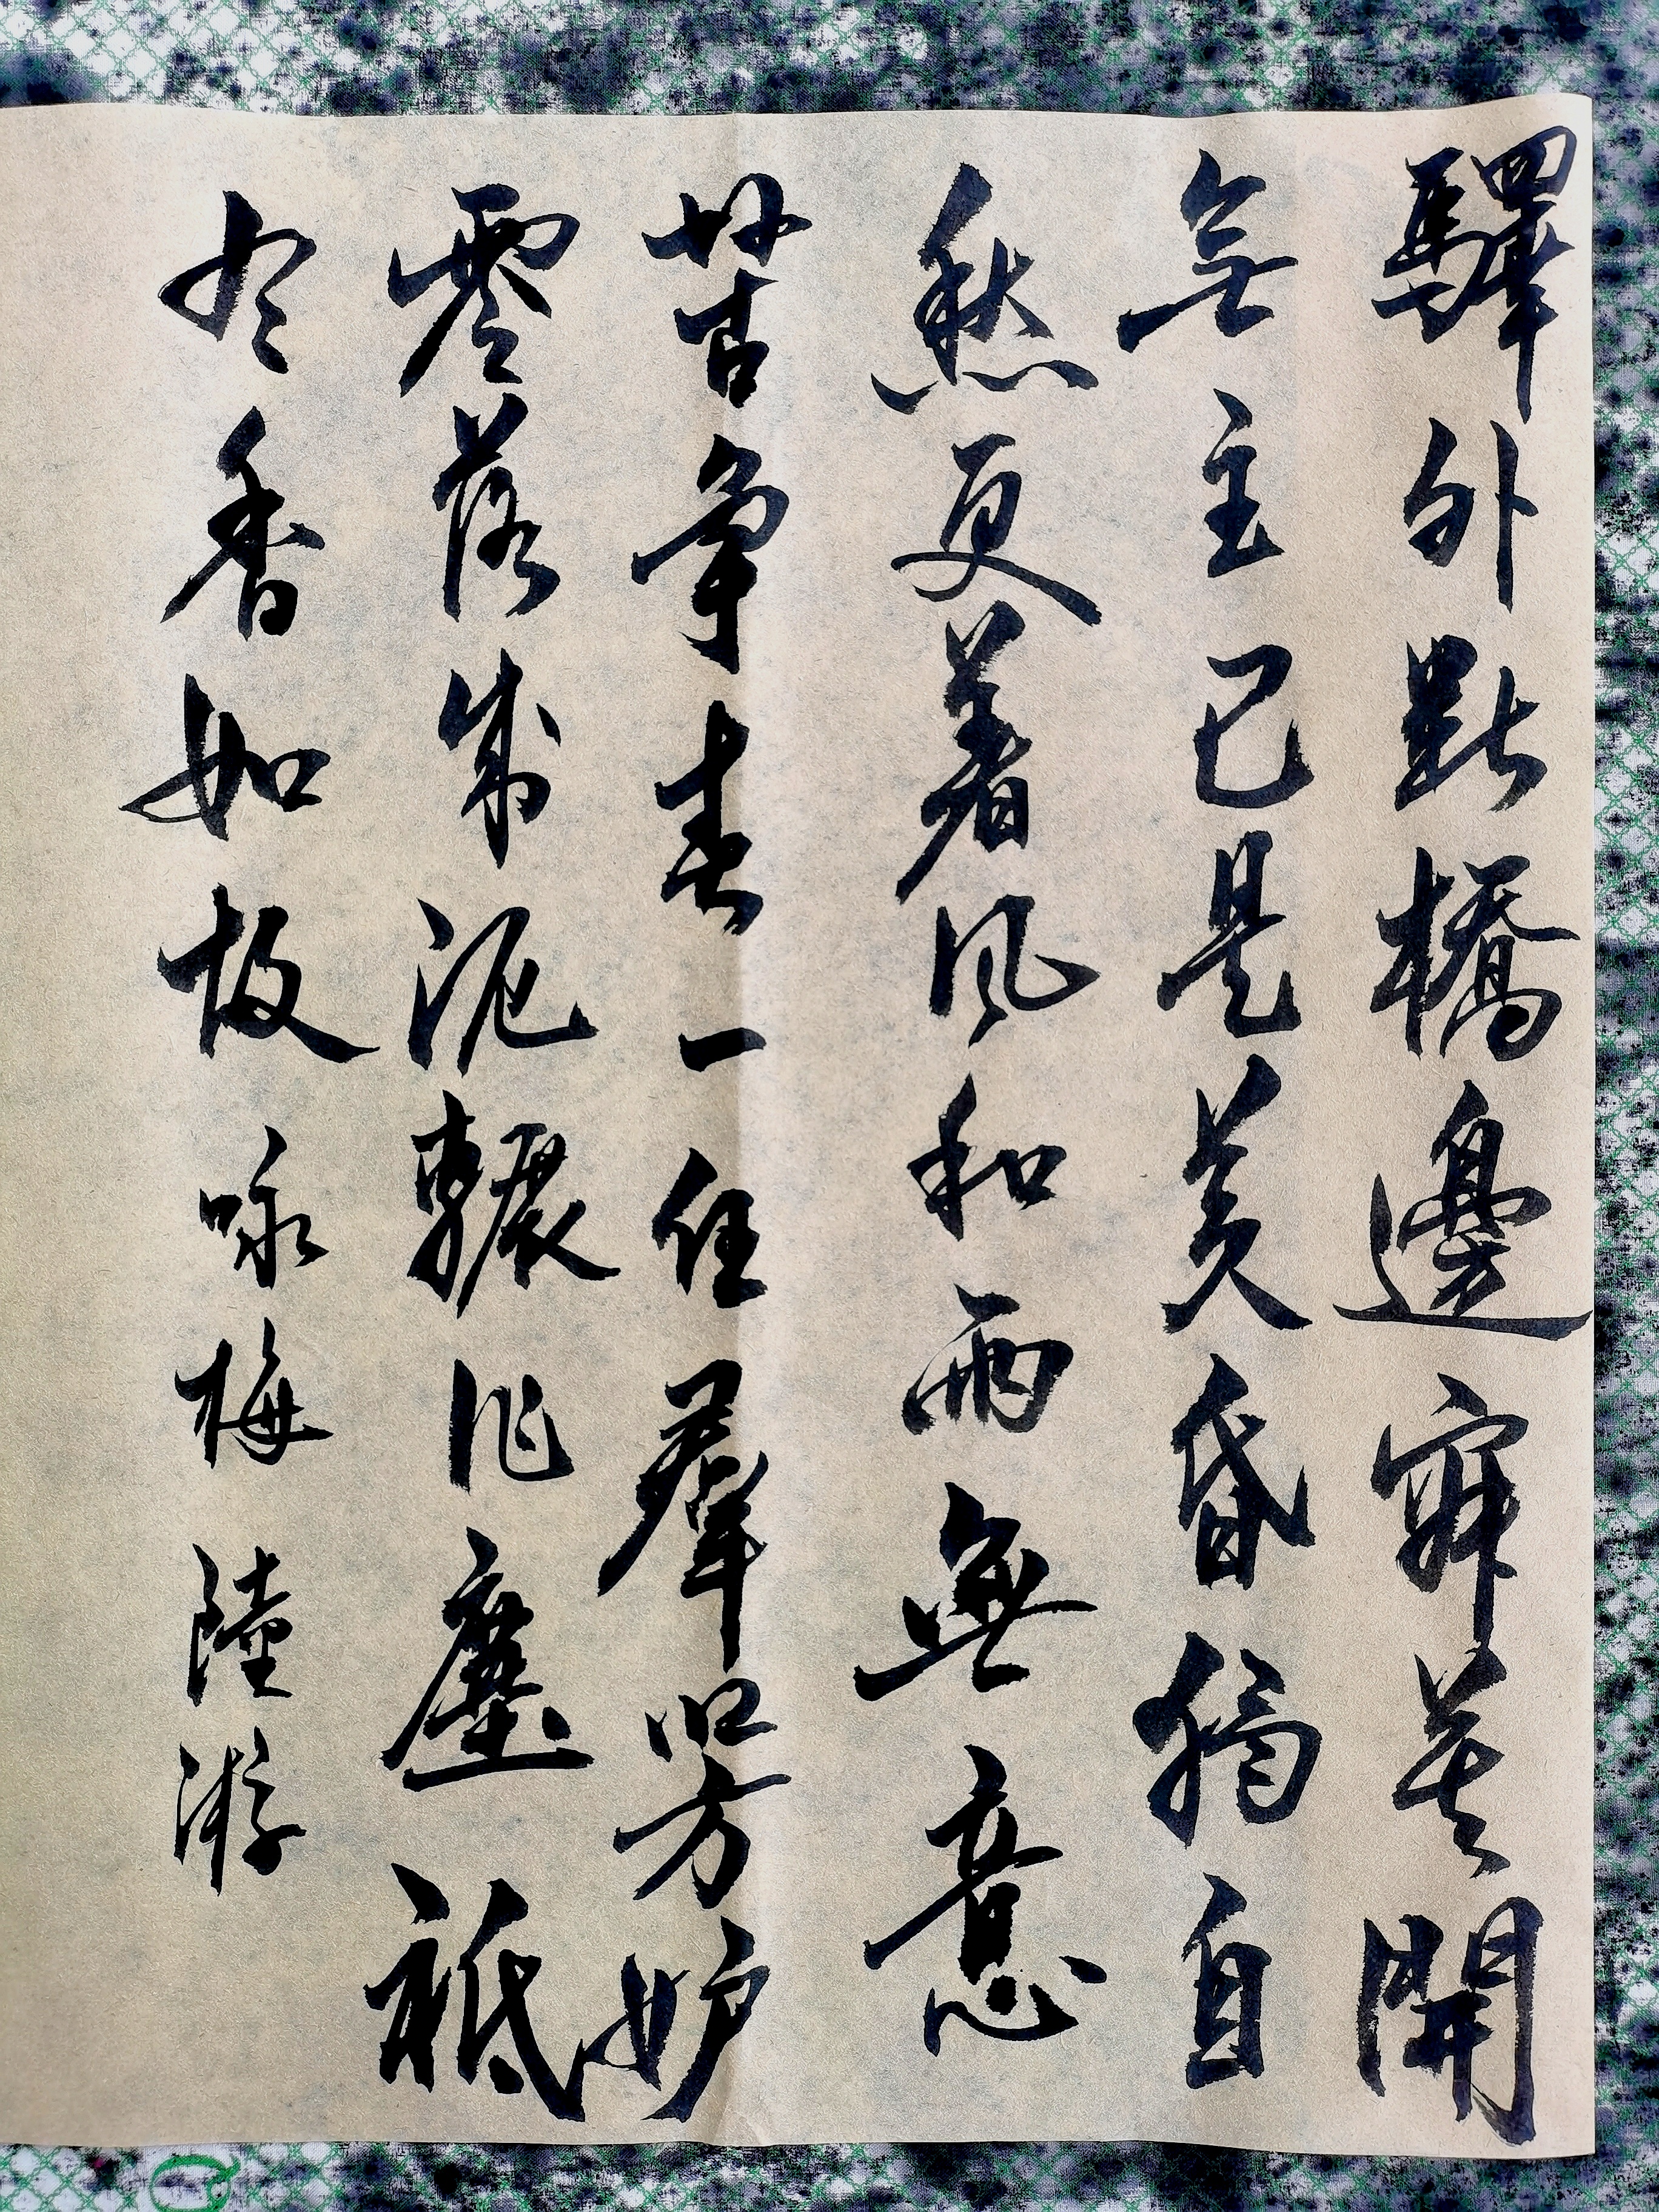 驛外斷橋邊寂寞開
無主已是黃昏獨自
愁更着風和雨無意
苦争春一任羣芳妒
零落成泥輾作塵祗
有香如故咏梅陸游